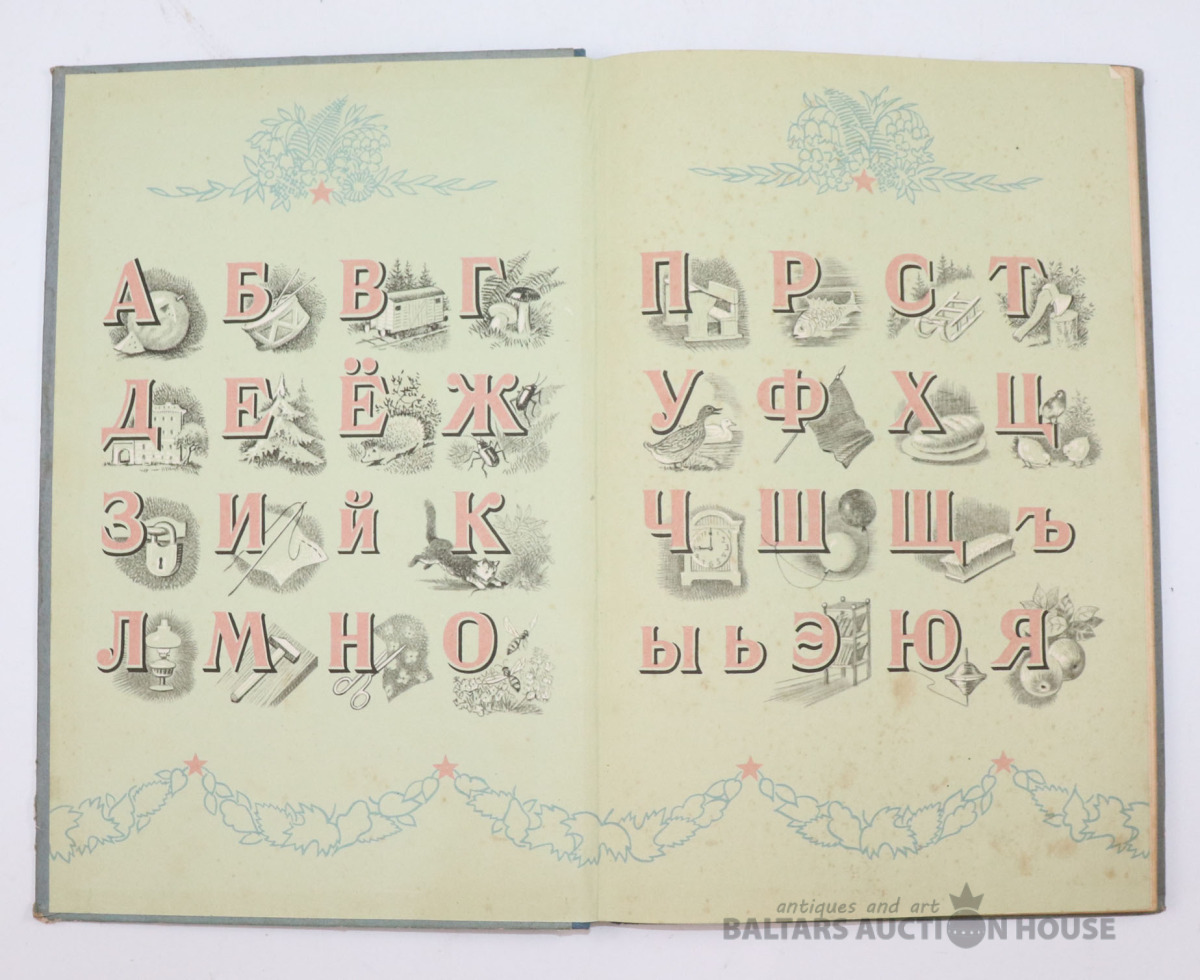 А Б В Г
Д Е Ё Ж
З И й К
Л М Н О
П Р С Т
У Ф Х Ц
Ч Ш Щ ъ
ы ь Э Ю Я
antiques and art
BALTARS AUCTION HOUSE